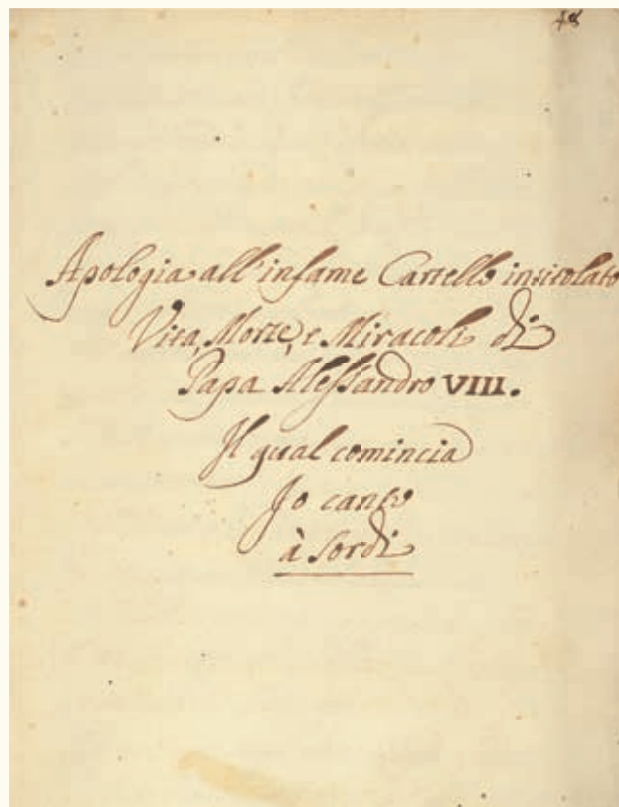 48
Apologia all'infame Cartello intitolato
Vita, Morte, e Miracoli di
Papa Alessandro VIII.
Il qual comincia
Io canto
à sordi